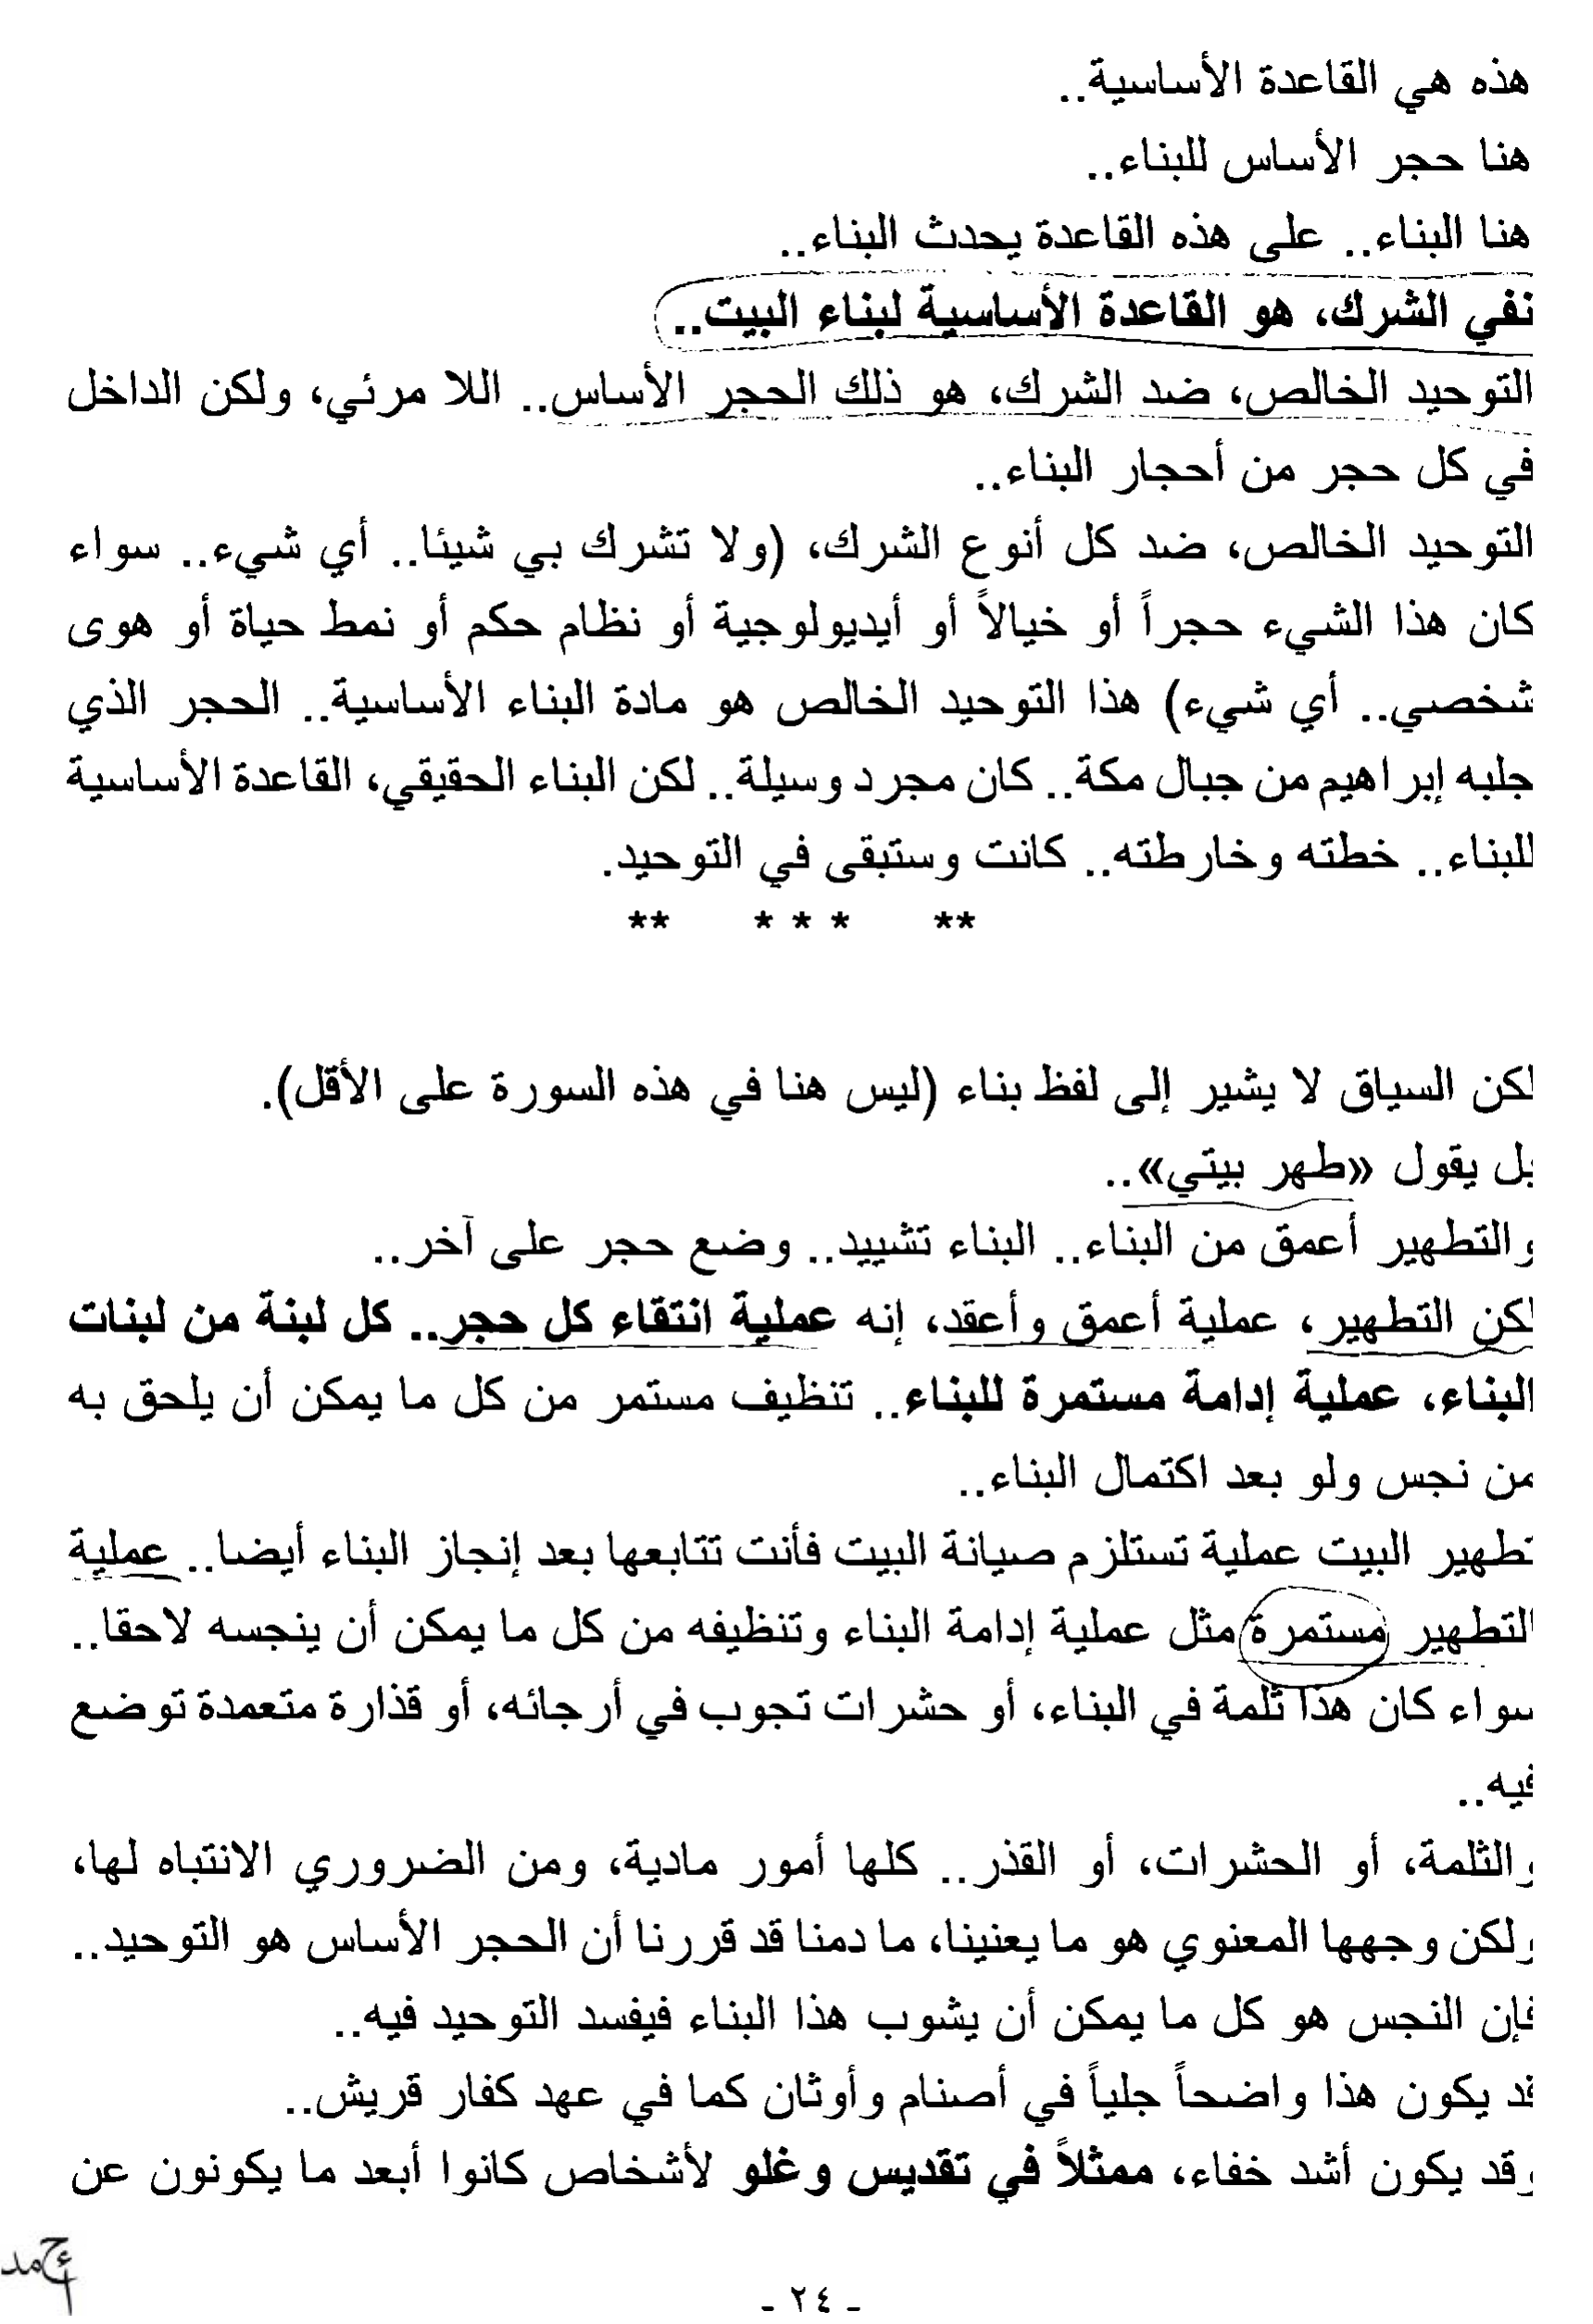 هذه هي القاعدة الأساسية..
هنا حجر الأساس للبناء..
هنا البناء.. على هذه القاعدة يحدث البناء..
نفي الشرك، هو القاعدة الأساسية لبناء البيت..
التوحيد الخالص، ضد الشرك، هو ذلك الحجر الأساس.. اللا مرئي، ولكن الداخل
في كل حجر من أحجار البناء..
التوحيد الخالص، ضد كل أنوع الشرك، (ولا تشرك بي شيئا.. أي شيء.. سواء
كان هذا الشيء حجراً أو خيالاً أو أيديولوجية أو نظام حكم أو نمط حياة أو هوى
شخصي.. أي شيء) هذا التوحيد الخالص هو مادة البناء الأساسية.. الحجر الذي
جلبه إبراهيم من جبال مكة.. كان مجرد وسيلة.. لكن البناء الحقيقي، القاعدة الأساسية
للبناء.. خطته وخارطته.. كانت وستبقى في التوحيد.
** * * * **
لكن السياق لا يشير إلى لفظ بناء (ليس هنا في هذه السورة على الأقل).
بل يقول «طهر بيتي»..
والتطهير أعمق من البناء.. البناء تشييد.. وضع حجر على آخر..
لكن التطهير، عملية أعمق وأعقد، إنه عملية انتقاء كل حجر.. كل لبنة من لبنات
البناء، عملية إدامة مستمرة للبناء.. تنظيف مستمر من كل ما يمكن أن يلحق به
من نجس ولو بعد اكتمال البناء..
تطهير البيت عملية تستلزم صيانة البيت فأنت تتابعها بعد إنجاز البناء أيضا.. عملية
التطهير مستمرة مثل عملية إدامة البناء وتنظيفه من كل ما يمكن أن ينجسه لاحقا..
سواء كان هذا ثلمة في البناء، أو حشرات تجوب في أرجائه، أو قذارة متعمدة توضع
فيه..
والثلمة، أو الحشرات، أو القذر.. كلها أمور مادية، ومن الضروري الانتباه لها،
ولكن وجهها المعنوي هو ما يعنينا، ما دمنا قد قررنا أن الحجر الأساس هو التوحيد..
فإن النجس هو كل ما يمكن أن يشوب هذا البناء فيفسد التوحيد فيه..
قد يكون هذا واضحاً جلياً في أصنام وأوثان كما في عهد كفار قريش..
وقد يكون أشد خفاء، ممثلاً في تقديس وغلو لأشخاص كانوا أبعد ما يكونون عن
أحمد
- ٢٤ -